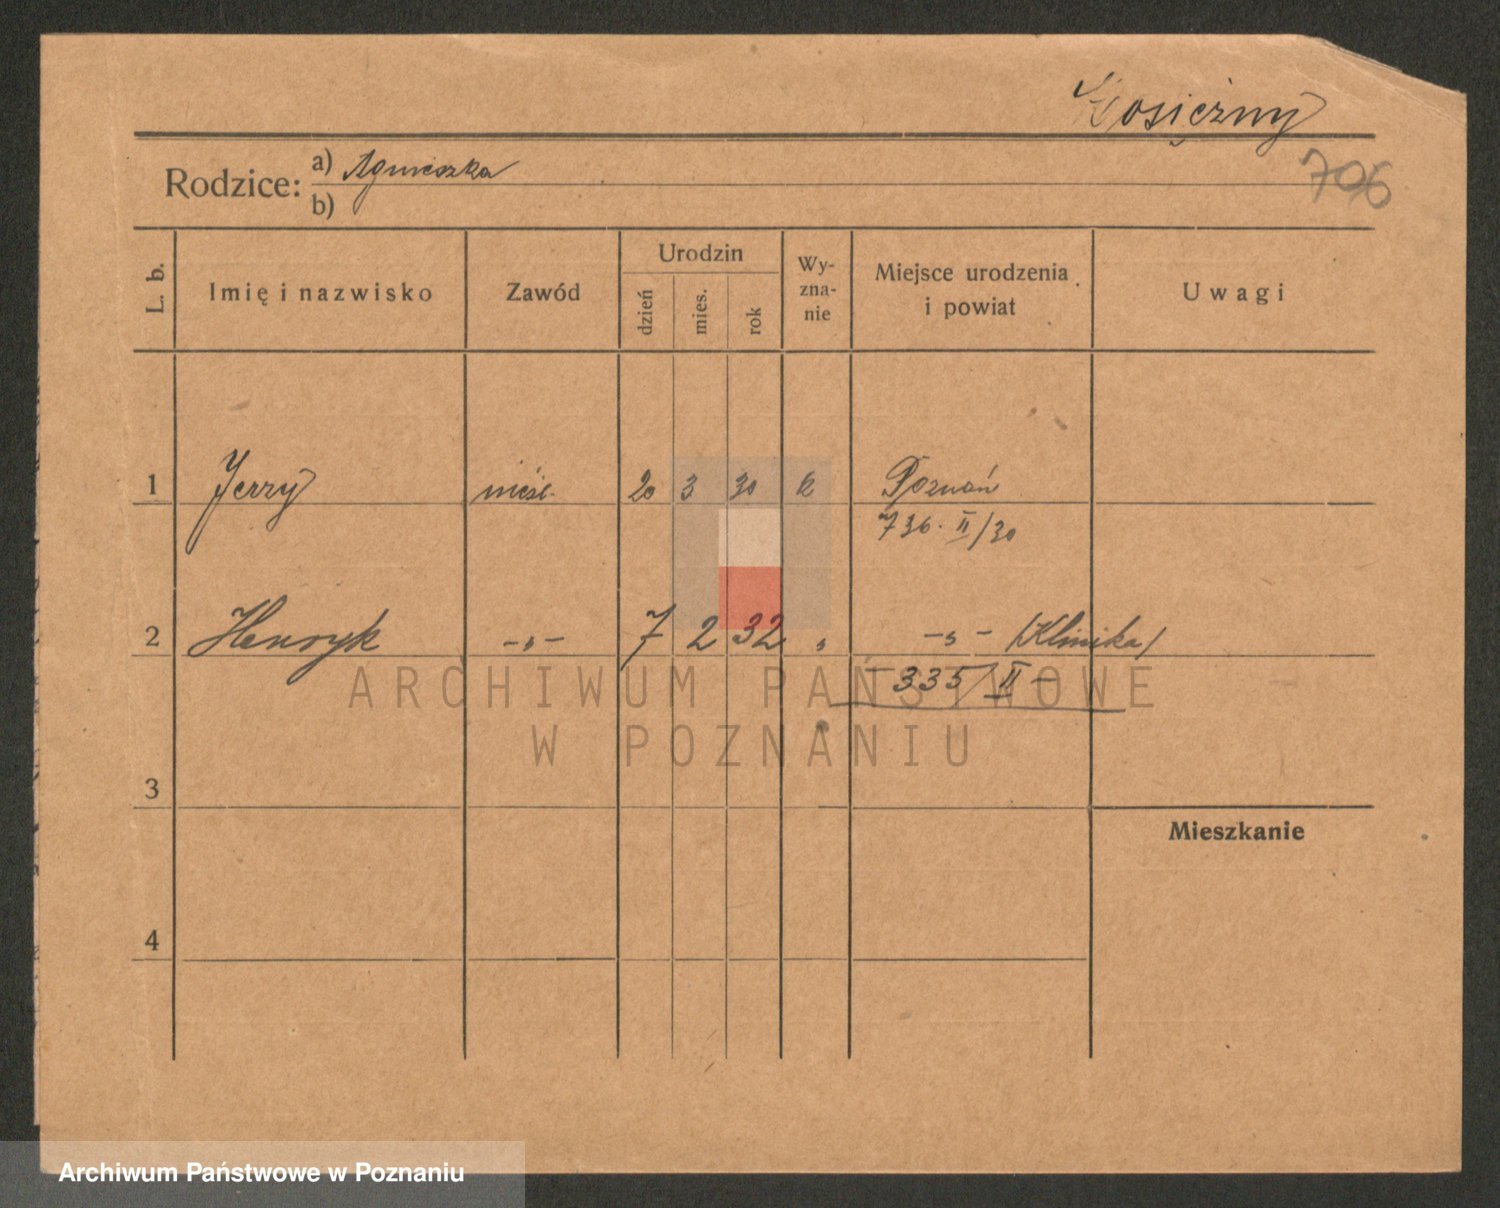 Kosiczny
706
Rodzice: a) Agnieszka
b)
L. b.
Imię i nazwisko
Zawód
Urodzin
dzień
mies.
rok
Wy-
zna-
nie
Miejsce urodzenia
i powiat
Uwagi
1 Jerzy nieśl. 20 3 30 k Poznań
736. II/30
2 Henryk -„- 7 2 32 „ -„- /Klinika/
335/II -
3
Mieszkanie
4
ARCHIWUM PAŃSTWOWE
W POZNANIU
Archiwum Państwowe w Poznaniu